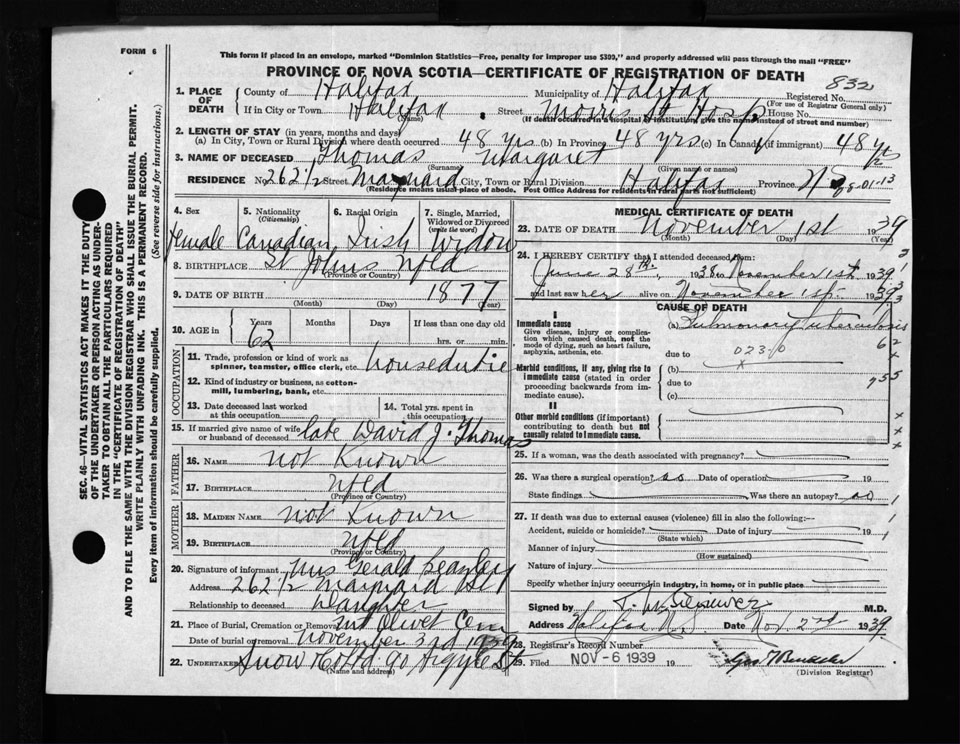 FORM 6
This form if placed in an envelope, marked "Dominion Statistics—Free, penalty for improper use $300," and properly addressed will pass through the mail "FREE"
PROVINCE OF NOVA SCOTIA—CERTIFICATE OF REGISTRATION OF DEATH
832
1. PLACE OF DEATH County of Halifax Municipality of Halifax Registered No.
(For use of Registrar General only)
If in City or Town Halifax Street Morris St Hosp House No.
(Name) (If death occurred in a hospital or institution, give the name instead of street and number)
2. LENGTH OF STAY (in years, months and days)
(a) In City, Town or Rural Division where death occurred 48 yrs (b) In Province 48 yrs (c) In Canada (if immigrant) 48 yrs
3. NAME OF DECEASED Thomas Margaret
(Surname) (Given name or names)
RESIDENCE No. 262 1/2 Street Maynard City, Town or Rural Division Halifax Province N
(Residence means usual place of abode. Post Office Address for residents in rural parts not sufficient)
4. Sex 5. Nationality (Citizenship) 6. Racial Origin 7. Single, Married, Widowed or Divorced (write the word)
Female Canadian Irish Widow
8. BIRTHPLACE St Johns Nfld
(Province or Country)
9. DATE OF BIRTH 1877
(Month) (Day) (Year)
10. AGE in Years Months Days If less than one day old
62 hrs. or min.
OCCUPATION
11. Trade, profession or kind of work as spinner, teamster, office clerk, etc. housedutie
12. Kind of industry or business, as cotton-mill, lumbering, bank, etc.
13. Date deceased last worked at this occupation 14. Total yrs. spent in this occupation
15. If married give name of wife or husband of deceased late David J. Thomas
FATHER
16. Name not Known
17. Birthplace Nfld
(Province or Country)
MOTHER
18. Maiden Name not Known
19. Birthplace Nfld
(Province or Country)
20. Signature of informant Mrs Gerald
Address 262 1/2 Maynard St
Relationship to deceased Daughter
21. Place of Burial, Cremation or Removal Mt Olivet Cem
Date of burial or removal November 3rd 1939
22. Undertaker Snow Co Ltd 90 Argyle St
(Name and address)
MEDICAL CERTIFICATE OF DEATH
23. DATE OF DEATH November 1st 1939
(Month) (Day) (Year)
24. I HEREBY CERTIFY that I attended deceased from:
June 28th 1938 to November 1st 1939
and last saw her alive on November 1st 1939
CAUSE OF DEATH
I
Immediate cause (a) Pulmonary tuberculosis
Give disease, injury or complication which caused death, not the mode of dying, such as heart failure, asphyxia, asthenia, etc.
due to
Morbid conditions, if any, giving rise to immediate cause (stated in order proceeding backwards from immediate cause).
(b)
due to
(c)
II
Other morbid conditions (if important) contributing to death but not causally related to immediate cause.
25. If a woman, was the death associated with pregnancy?
26. Was there a surgical operation? no Date of operation 19
State findings Was there an autopsy? no
27. If death was due to external causes (violence) fill in also the following:—
Accident, suicide or homicide? Date of injury 19
(State which)
Manner of injury
(How sustained)
Nature of injury
Specify whether injury occurred in industry, in home, or in public place
Signed by M.D.
Address Halifax N.S. Date Nov. 2nd 1939
28. Registrar's Record Number
29. Filed NOV - 6 1939 19
(Division Registrar)
SEC. 46—VITAL STATISTICS ACT MAKES IT THE DUTY
OF THE UNDERTAKER OR PERSON ACTING AS UNDER-
TAKER TO OBTAIN ALL THE PARTICULARS REQUIRED
IN THE "CERTIFICATE OF REGISTRATION OF DEATH"
AND TO FILE THE SAME WITH THE DIVISION REGISTRAR WHO SHALL ISSUE THE BURIAL PERMIT.
WRITE PLAINLY WITH UNFADING INK. THIS IS A PERMANENT RECORD.
Every item of information should be carefully supplied. (See reverse side for instructions.)